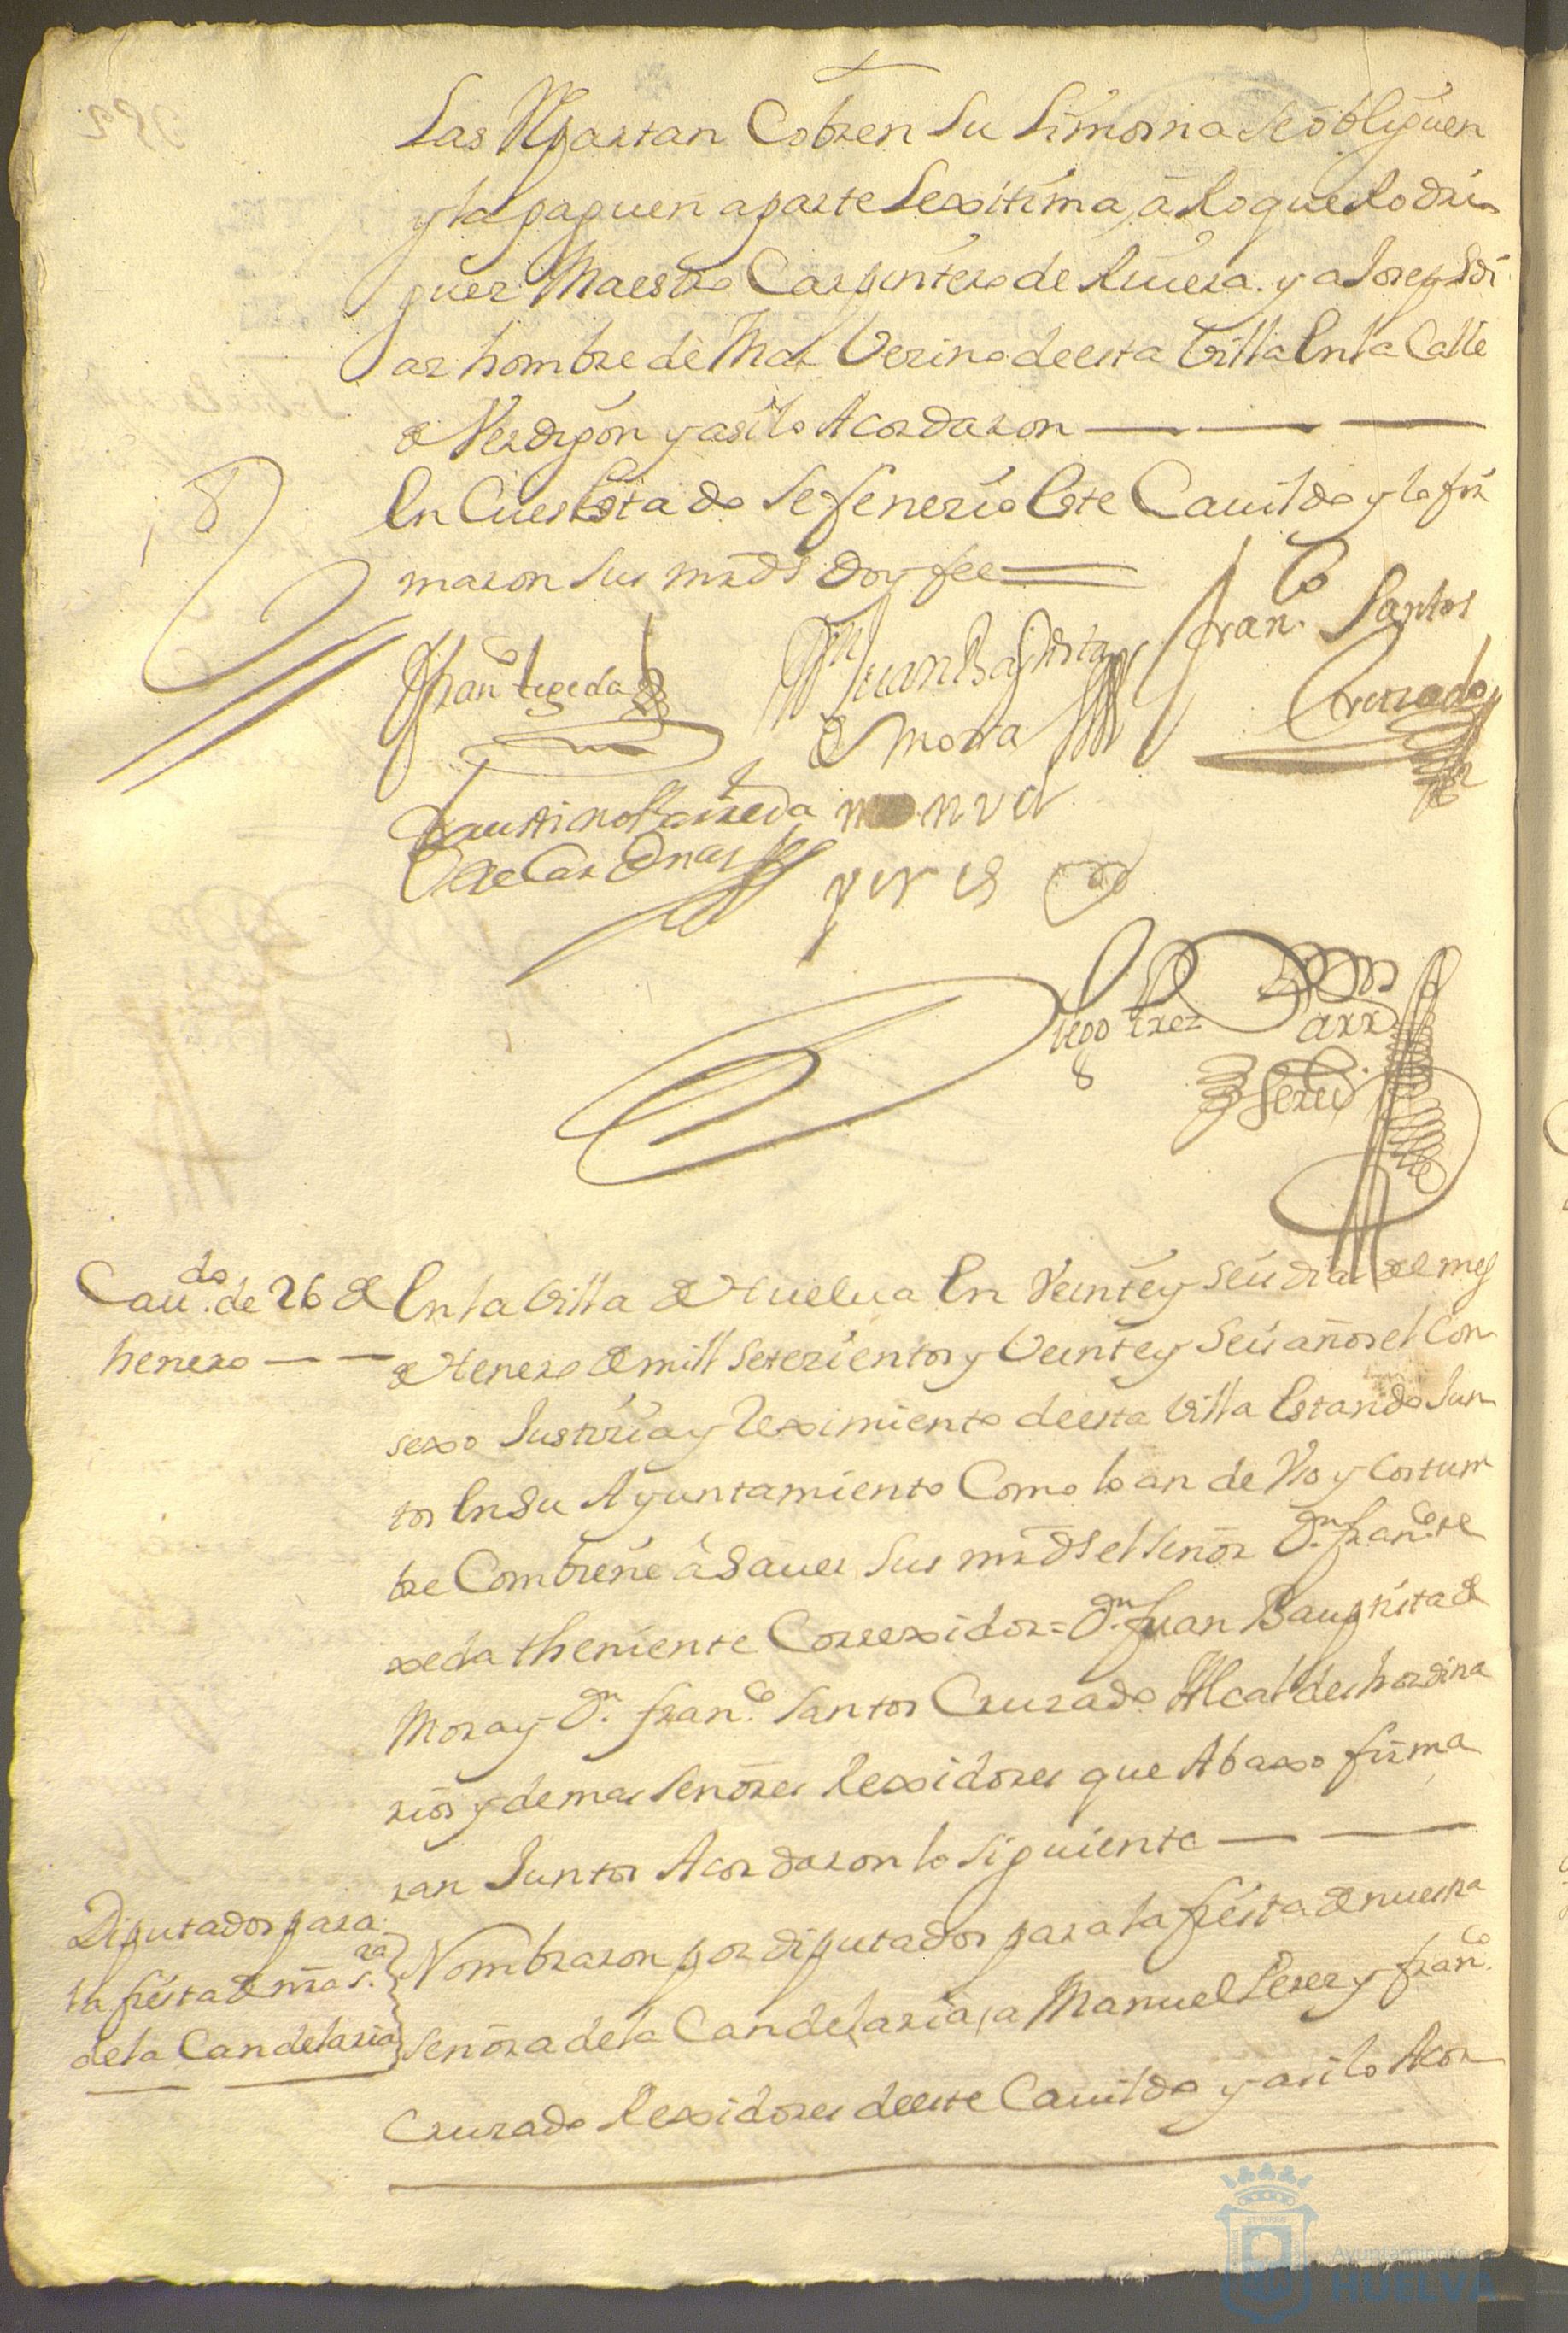 las Repartan Cobren su limosna se obliguen
y la paguen a parte lexitima, a Roque Rodri
guez Maestro Carpintero de Riuera. y a Joseph Di
az hombre de Mar Vezino de esta Villa En la Calle
de Verdigon y asi lo Acordaron
En Cuio Estado se fenezio Este Cauildo y lo fir
maron sus mrds doy fee
Franco texeda
Dn Juan Baptista
de Mora
Franco Santos
Cruzado
Faustino Castañeda
de Cardenas
manuel
peres
Diego Perez
Sno
Cauдо de 26 de
henero
En la Villa de Huelua En Veinte y seis dias del mes
de Henero de mill setezientos y Veinte y seis años el Con
sexo Justizia y Reximiento de esta Villa Estando Jun
tos En su Ayuntamiento Como lo an de Vso y Costum
bre Combiene a Sauer sus mrds el señor Dn Franco te
xeda theniente Correxidor = Dn Juan Bauptista de
Mora y Dn Franco Santos Cruzado Alcaldes hordina
rios y demas señores Rexidores que Abaxo firma
ran Juntos Acordaron lo siguiente
Diputados para
la fiesta de nra sra
de la Candelaria
Nombraron por diputados para la fiesta de nuestra
señora de la Candelaria, a Manuel Perez y Franco
Cruzado Rexidores de este Cauildo y asi lo Acor
Ayuntamiento
HUELVA